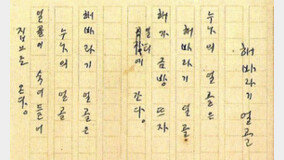 해바라기 얼골
누나의 얼골은
해바라기 얼골
해가 금방 뜨자
일터에 간다.
해바라기 얼골은
누나의 얼골
얼골이 숙어들어
집으로 온다.